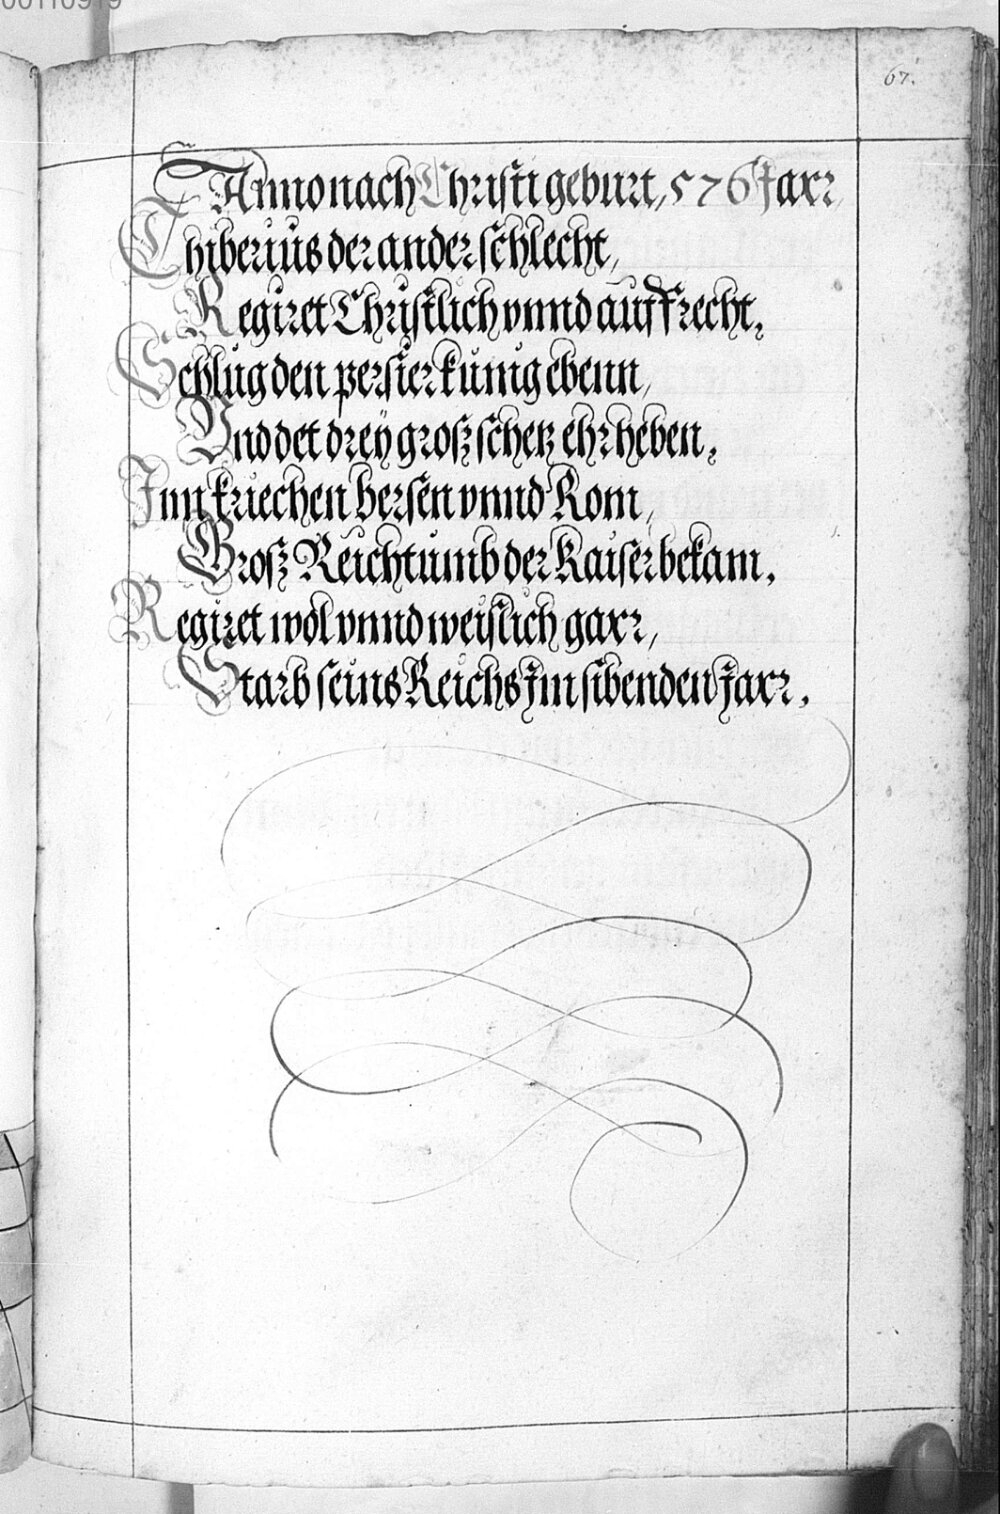 00110919
67.
Anno nach Christi geburt, 576 Jaxr
Thiberius der ander schlecht,
Regiret Christlich vnnd auffrecht,
Schlug den persier künig ebenn,
Vnd det dreÿ groß schetz ehrheben,
Inn kriechen bersen vnnd Rom,
Groß Reichtumb der Kaiser bekam,
Regiret wol vnnd weislich gaxr,
Starb seins Reichs Jm sibenden Jaxr,